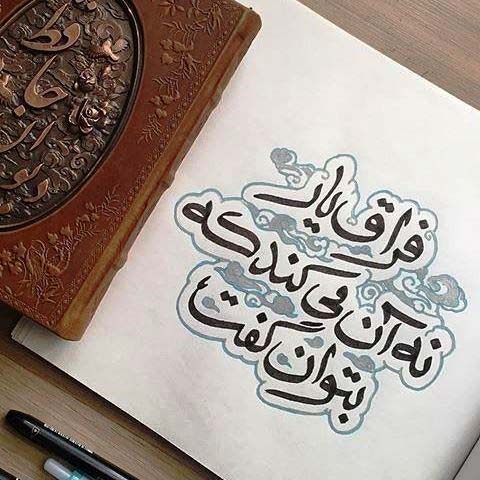 فراق یار
نه آن می کند که
بتوان گفت
حافظ